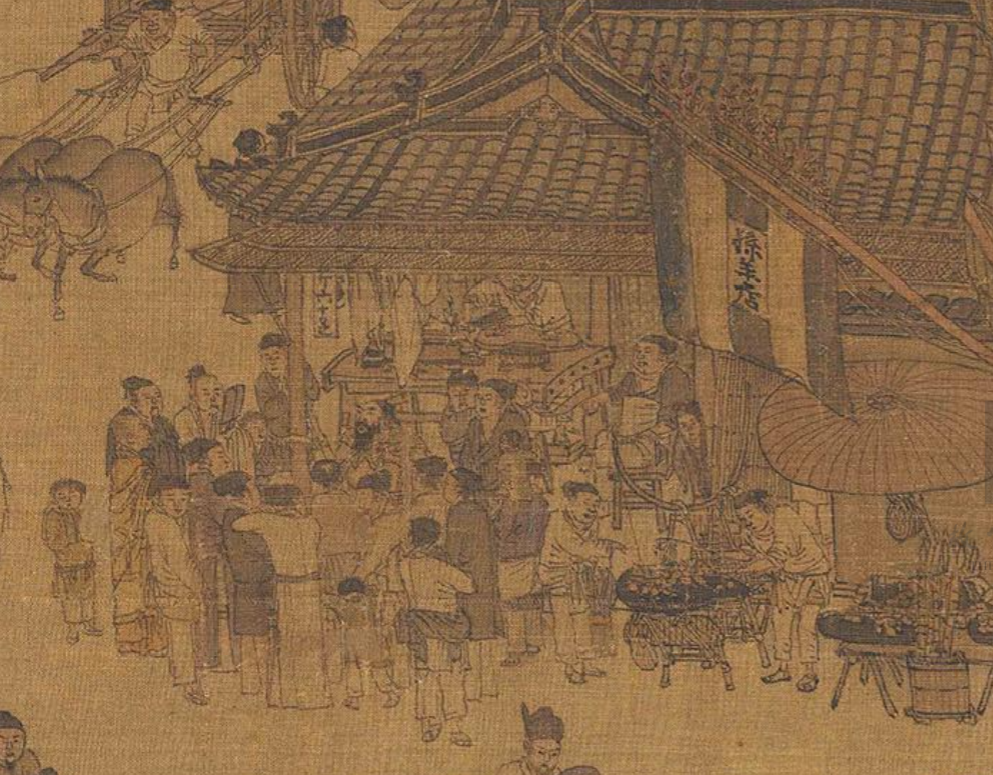 孫羊店
六十足